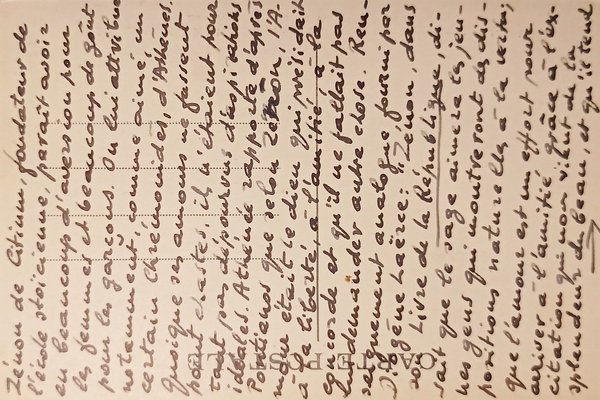 Zénon de Citium, fondateur de
l'école stoïcienne, paraît avoir
eu beaucoup d'aversion pour
les femmes et beaucoup de goût
pour les garçons. On lui attribue
notamment comme aimé un
certain Chrémonidès, d'Athènes.
Quoique ses amours ne fussent
point chastes, ils n'étaient pour
tant pas dépourvus d'aspirations
idéales. Athénée rapporte d'après
Potianos que selon Zénon, l'A-
mour était le dieu qui présidait
à la liberté, à l'amitié, à la
concorde et qu'il ne fallait pas
lui demander autre chose. Ren-
seignement analogue fourni par
Diogène Laërce: Zénon, dans
son Livre de la République, di-
sait que le sage aimera les jeu-
nes gens qui montreront des dis-
positions naturelles à la vertu,
que l'amour est un effort pour
arriver à l'amitié grâce à l'ex-
citation qui nous vient de la
splendeur du beau, et qu'il tend
CARTE POSTALE